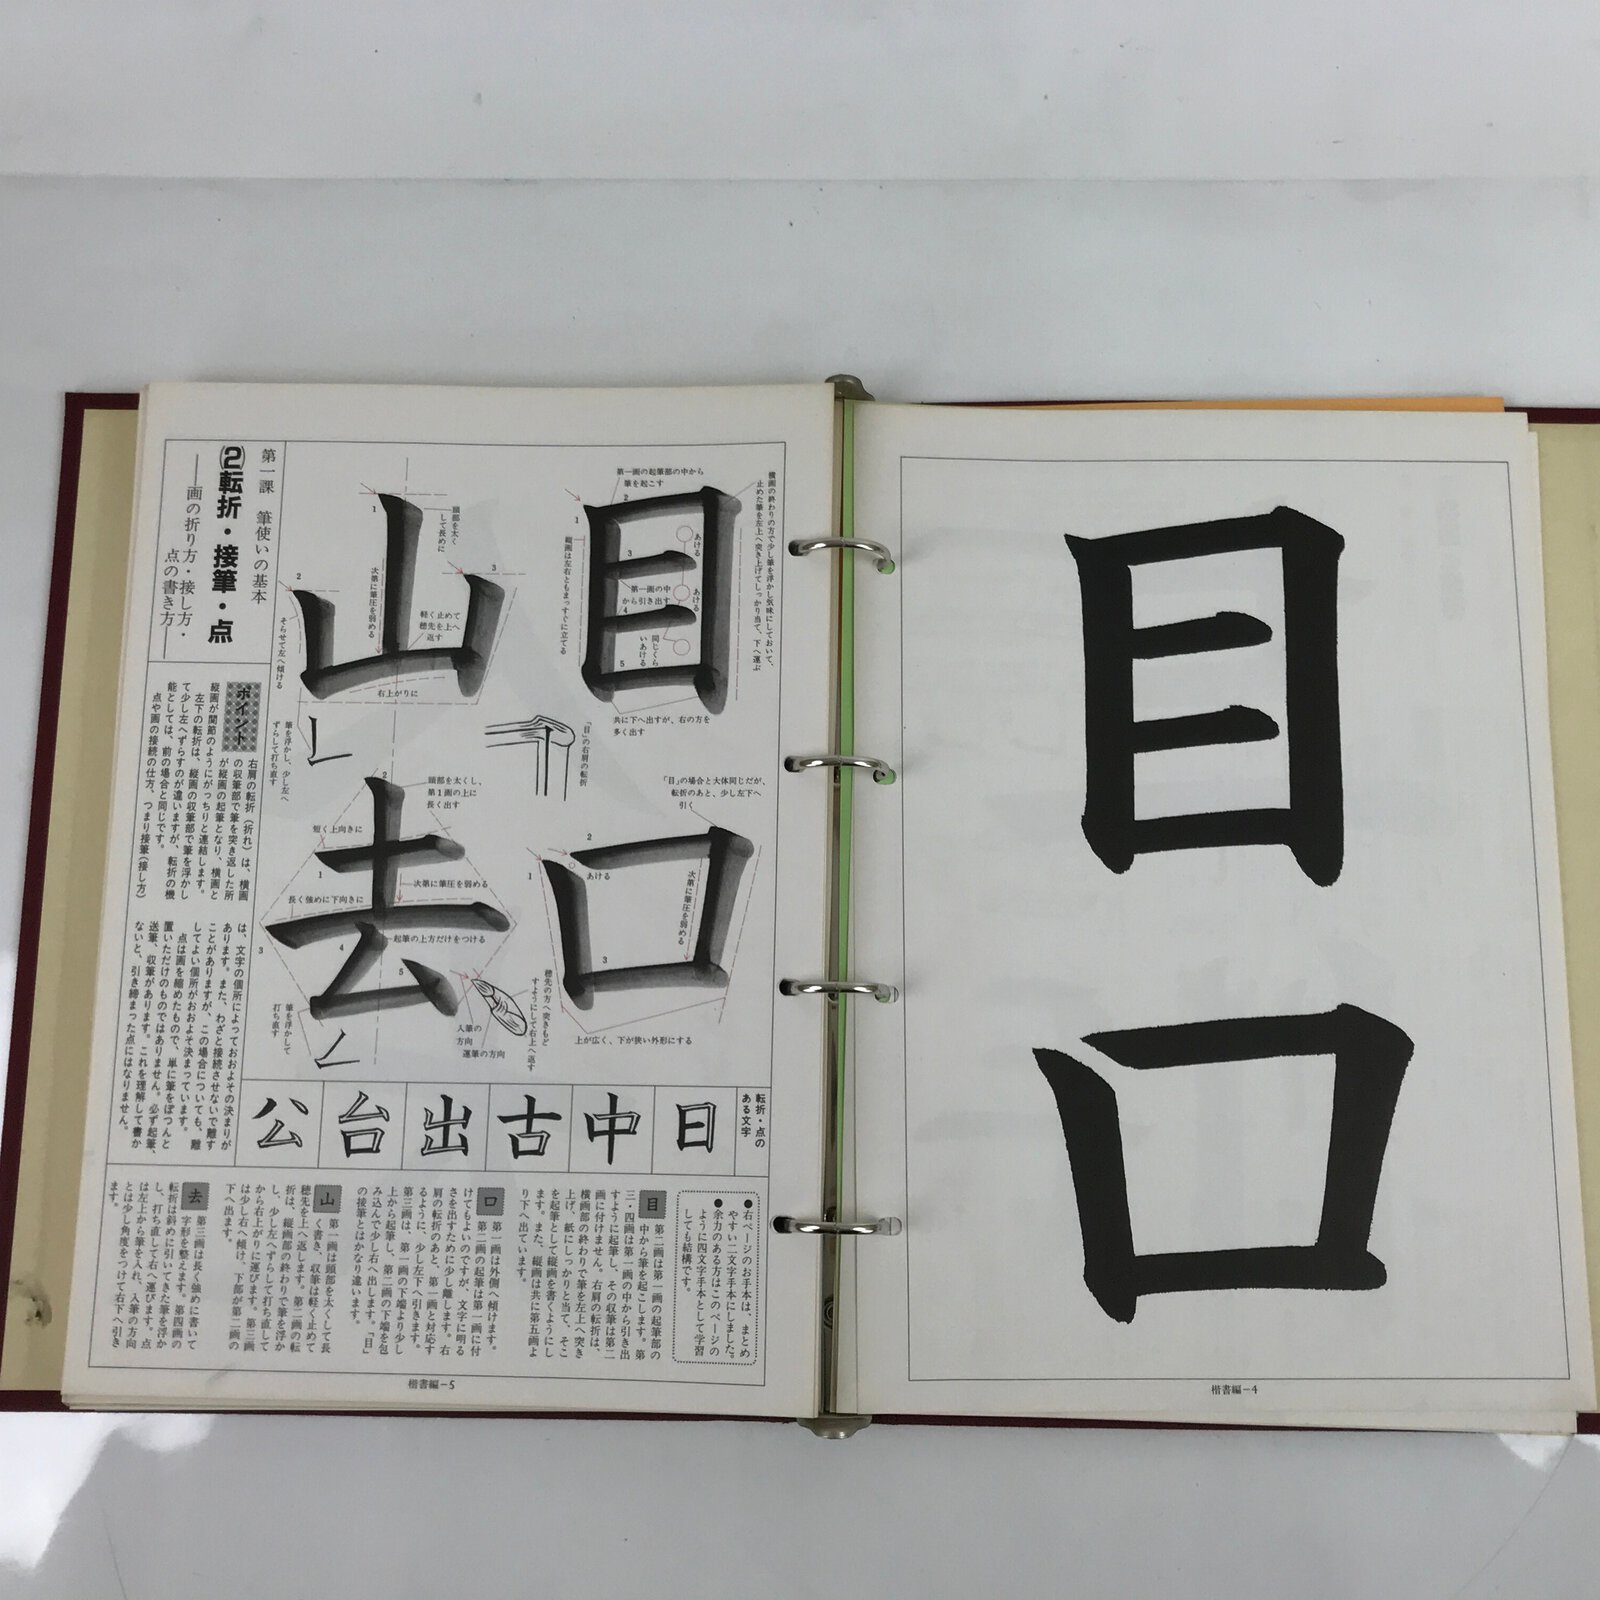 目
口
楷書編－4
横画の終わりの方で少し筆を浮かし気味にしておいて、
止めた筆を左上へ突き上げてしっかり当て、下へ運ぶ
第一画の起筆部の中から
筆を起こす
あける
あける
同じくら
いあける
第一画の中
から引き出す
縦画は左右ともまっすぐに立てる
1
2
3
4
5
目
共に下へ出すが、右の方を
多く出す
「目」の右肩の転折
「目」の場合と大体同じだが、
転折のあと、少し左下へ
引く
1
2
3
あける
次第に筆圧を弱める
口
穂先の方へ突きもど
すようにして右上へ返す
上が広く、下が狭い外形にする
頭部を太く
して長めに
1
2
3
次第に筆圧を弱める
軽く止めて
穂先を上へ
返す
そらせて左へ傾ける
右上がりに
山
筆を浮かし、少し左へ
ずらして打ち直す
頭部を太くし、
第1画の上に
長く出す
短く上向きに
長く強めに下向きに
次第に筆圧を弱める
起筆の上方だけをつける
1
2
3
4
5
去
筆を浮かして
打ち直す
入筆の
方向
運筆の方向
第一課　筆使いの基本
(2)転折・接筆・点
――画の折り方・接し方・
点の書き方――
ポイント
右肩の転折（折れ）は、横画
の収筆部で筆を突き返した所
が縦画の起筆となり、横画と
縦画が関節のようにがっちりと連結します。
左下の転折は、縦画の収筆部で筆を浮かし
て少し左へずらすのが違いますが、転折の機
能としては、前の場合と同じです。
点や画の接続の仕方、つまり接筆（接し方）
は、文字の個所によっておおよその決まりが
あります。また、わざと接続させないで離す
ことがありますが、この場合についても、離
してよい個所がおおよそ決まっています。
点は画を縮めたもので、単に筆をぽつんと
置いただけのものではありません。必ず起筆、
送筆、収筆があります。これを理解して書か
ないと、引き締まった点にはなりません。
転折・点の
ある文字
日
中
古
出
台
公
●右ページのお手本は、まとめ
やすい二文字手本にしました。
●余力のある方はこのページの
ように四文字手本として学習
しても結構です。
目　第二画は第一画の起筆部の
中から筆を起こします。第
三・四画は第一画の中から引き出
すように起筆し、その収筆は第二
画に付けません。右肩の転折は、
横画部の終わりで筆を左上へ突き
上げ、紙にしっかりと当て、そこ
を起筆として縦画を書くようにし
ます。また、縦画は共に第五画よ
り下へ出ています。
口　第一画は外側へ傾けます。
第二画の起筆は第一画に付
けてもよいのですが、文字に明る
さを出すために少し離します。右
肩の転折のあと、第一画と対応す
るように、少し左下へ引きます。
第三画は、第一画の下端より少し
上から起筆し、第二画の下端を包
み込んで少し右へ出します。「目」
の接筆とはかなり違います。
山　第一画は頭部を太くして長
く書き、収筆は軽く止めて
穂先を上へ返します。第二画の転
折は、縦画部の終わりで筆を浮か
し、少し左へずらして打ち直して
から右上がりに運びます。第三画
は少し右へ傾け、下部が第二画の
下へ出ます。
去　第三画は長く強めに書いて
字形を整えます。第四画の
転折は斜めに引いてきた筆を浮か
し、打ち直して右へ運びます。点
は左上から筆を入れ、入筆の方向
とは少し角度をつけて右下へ引き
ます。
楷書編－5